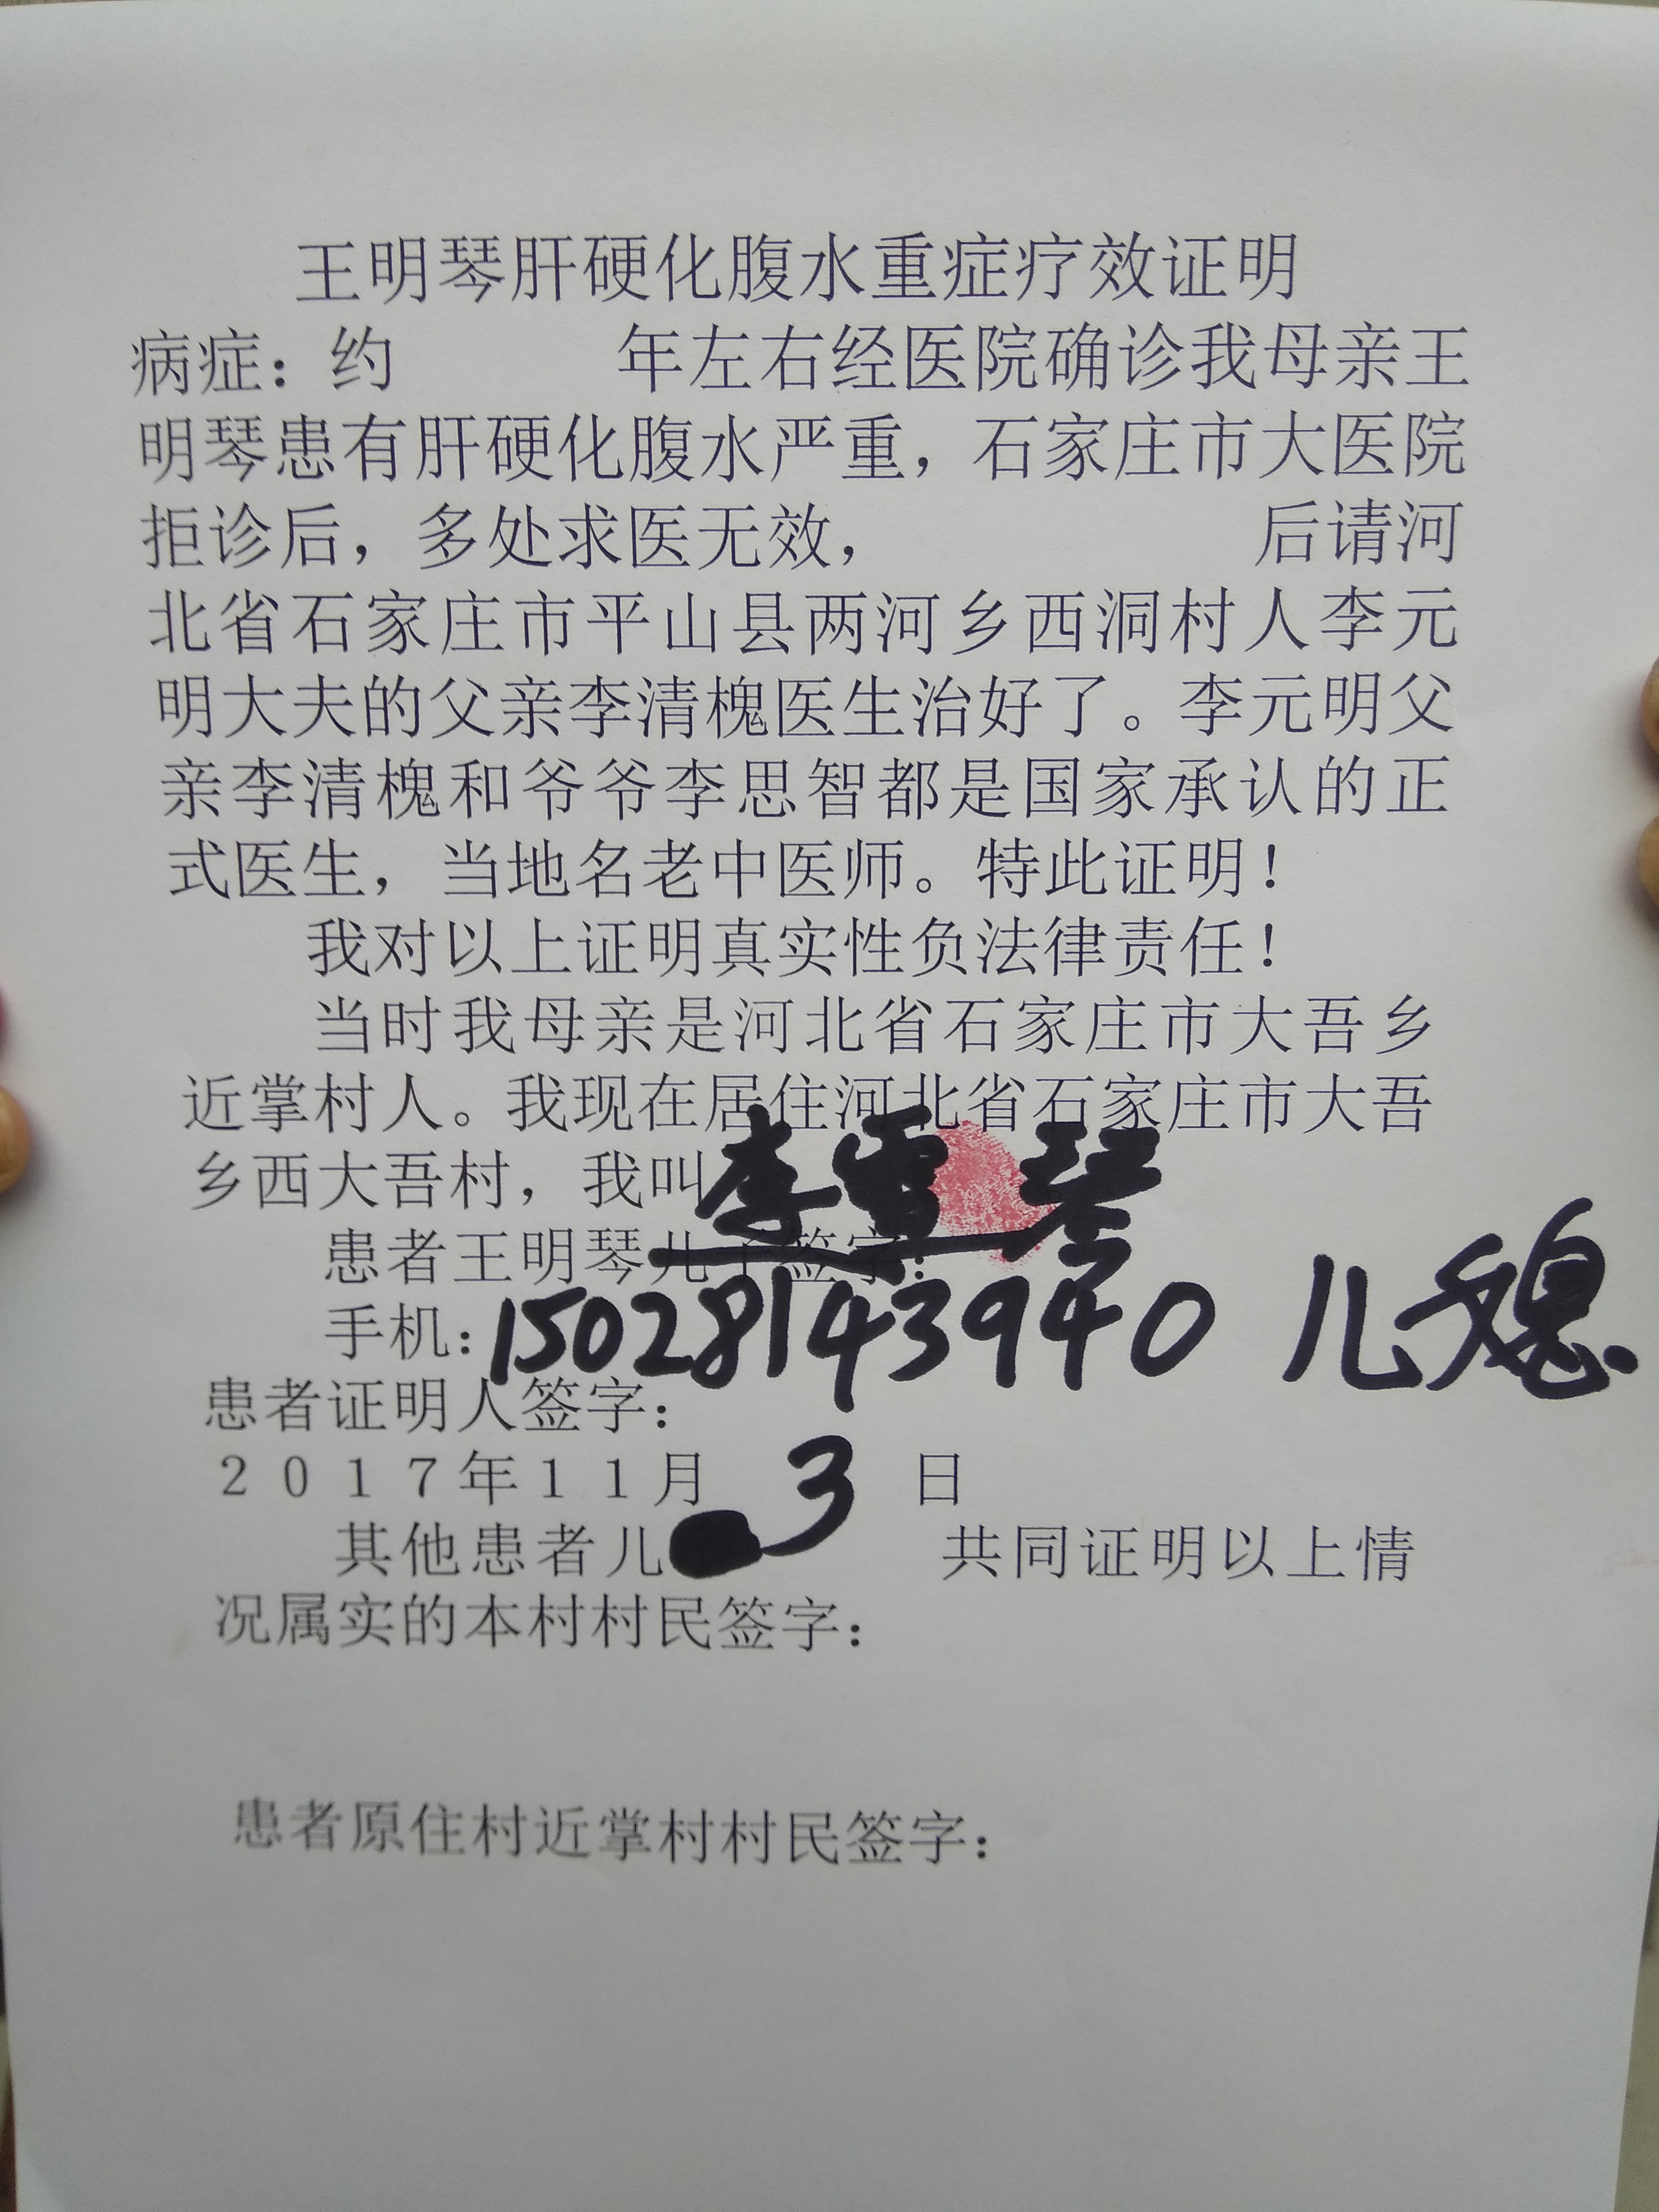 王明琴肝硬化腹水重症疗效证明
病症：约 年左右经医院确诊我母亲王
明琴患有肝硬化腹水严重，石家庄市大医院
拒诊后，多处求医无效， 后请河
北省石家庄市平山县两河乡西洞村人李元
明大夫的父亲李清槐医生治好了。李元明父
亲李清槐和爷爷李思智都是国家承认的正
式医生，当地名老中医师。特此证明！
我对以上证明真实性负法律责任！
当时我母亲是河北省石家庄市大吾乡
近掌村人。我现在居住河北省石家庄市大吾
乡西大吾村，我叫李雪琴
患者王明琴儿子签字：
手机：15028143940 儿媳
患者证明人签字：
2017年11月 3 日
其他患者儿 共同证明以上情
况属实的本村村民签字：
患者原住村近掌村村民签字：